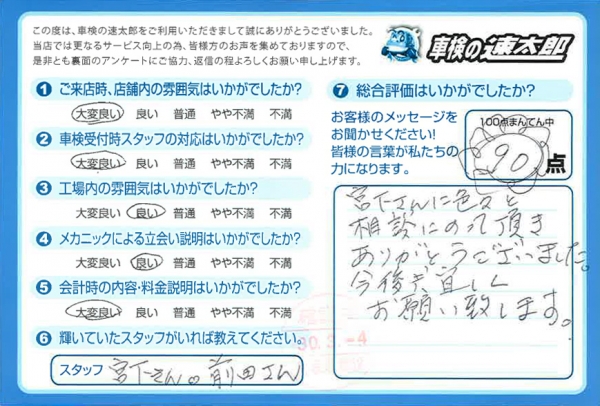 この度は、車検の速太郎をご利用いただきまして誠にありがとうございました。
当店では更なるサービス向上の為、皆様方のお声を集めておりますので、
是非とも裏面のアンケートにご協力、返信の程よろしくお願い申し上げます。
車検の速太郎
1 ご来店時、店舗内の雰囲気はいかがでしたか?
大変良い 良い 普通 やや不満 不満
2 車検受付時スタッフの対応はいかがでしたか?
大変良い 良い 普通 やや不満 不満
3 工場内の雰囲気はいかがでしたか?
大変良い 良い 普通 やや不満 不満
4 メカニックによる立会い説明はいかがでしたか?
大変良い 良い 普通 やや不満 不満
5 会計時の内容・料金説明はいかがでしたか?
大変良い 良い 普通 やや不満 不満
6 輝いていたスタッフがいれば教えてください。
スタッフ 宮下さん。前田さん
7 総合評価はいかがでしたか?
お客様のメッセージを
お聞かせください!
皆様の言葉が私たちの
力になります。
100点まんてん中
90点
宮下さんに色々と
相談にのって頂き
ありがとうございました。
今後も宜しく
お願い致します。
30.3.-4